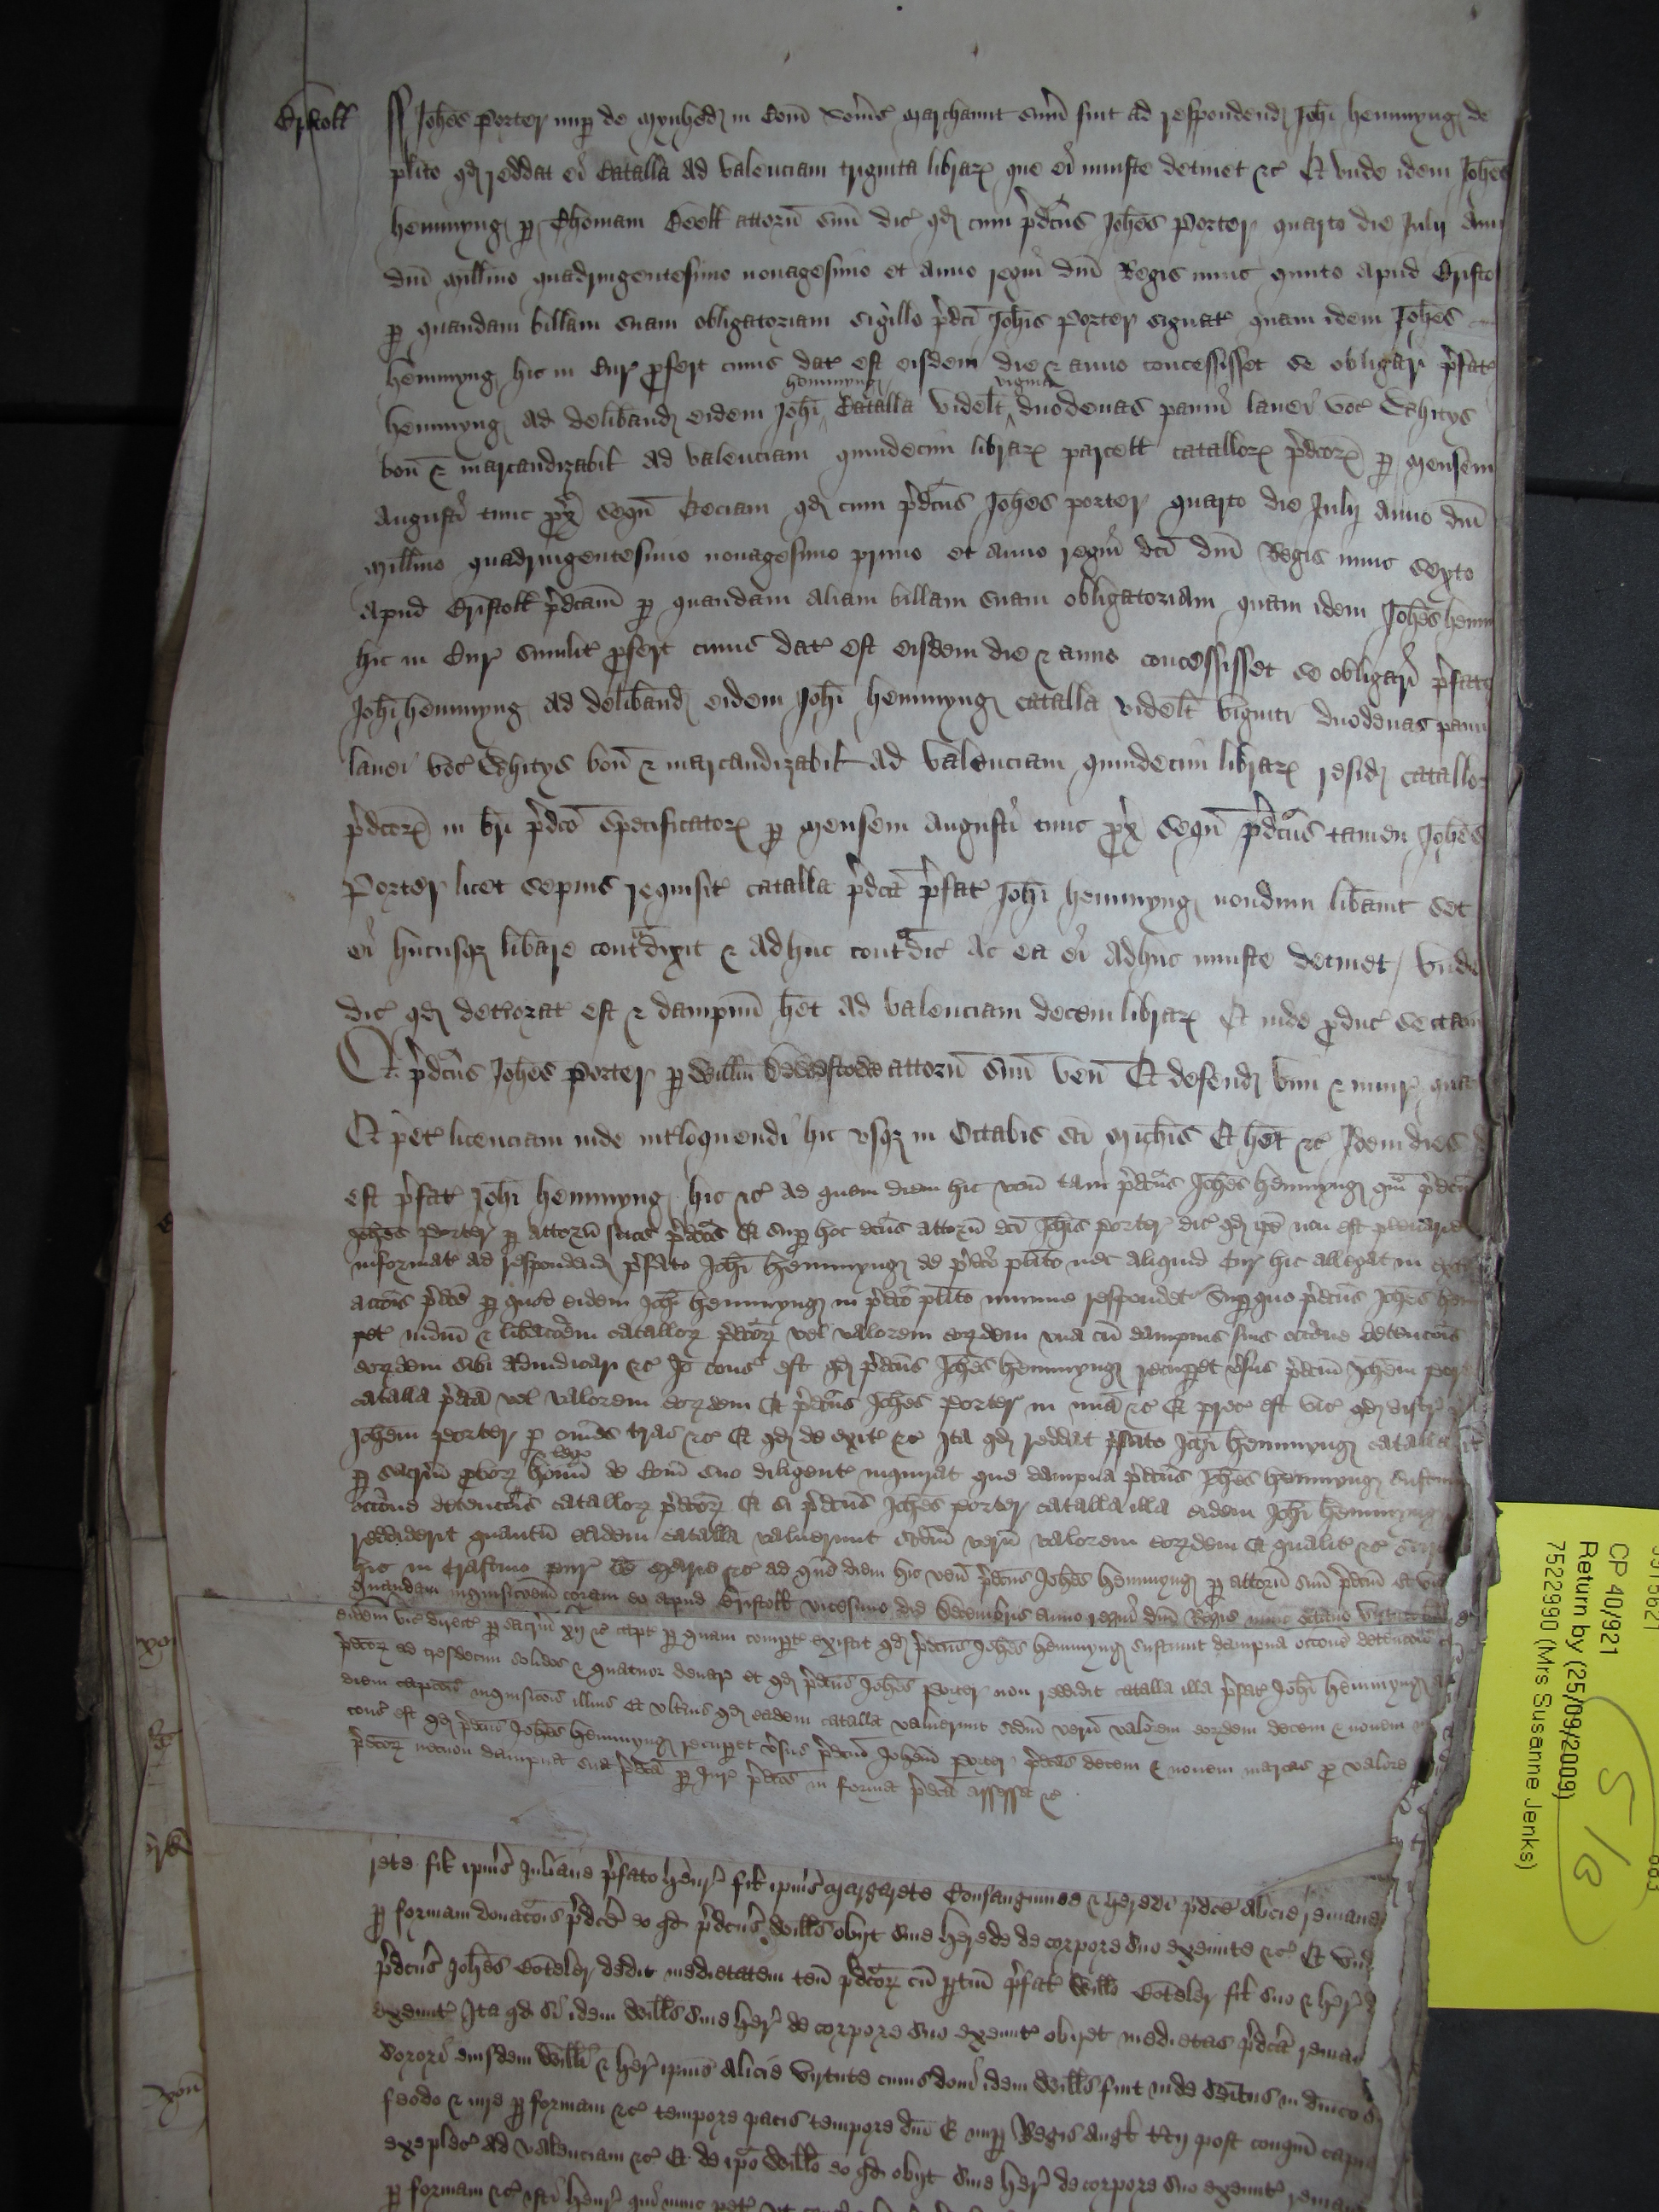 Bristoll
Joh̄es Porter nup̱ de Mynhed in Com̄ Som̄s marchaunt sum̄ fuit ad respondend Joh̄i hemmyng de
pl̄ito qd reddat ei Catalla ad valenciam triginta librar que ei iniuste detinet &c Et unde idem Joh̄es
hemmyng p̱ Thomam attorn̄ suu̅ dic̄ qd cum p̄dc̄us Joh̄es Porter quarto die Julij Anno
dn̄i Mill̄mo quadringentesimo nonagesimo et anno regni dn̄i Regis nunc quinto apud Bristo
p̱ quandam billam suam obligatoriam sigillo p̄dc̄i Joh̄is Porter signat̄ quam idem Joh̄es
hemmyng hic in Cur̄ p̱fert cuius dat̄ est eisdem die & anno concessisset se obligari p̄fat̄
hemmyng ad delib̄and eidem Joh̄i hemmyng Catalla videl̄t viginti duodenas panni lanei voc̄ Whitys
bon̄ & marcandizabil̄ ad valenciam quindecim librar parcell̄ catallor p̄dc̄or p̱ Mensem
Augusti tunc p̱x̄ seqū Eciam qd cum p̄dc̄us Joh̄es Porter quarto die Julij anno dn̄i
Mill̄mo quadringentesimo nonagesimo primo et anno regni dc̄i dn̄i Regis nunc sexto
apud Bristoll̄ p̄dc̄am p̱ quandam aliam billam suam obligatoriam quam idem Joh̄es hemm
hic in Cur̄ similit̄ p̱fert cuius dat̄ est eisdem die & anno concessisset se obligari p̄fato
Joh̄i hemmyng ad delib̄and eidem Joh̄i hemmyng catalla videl̄t viginti duodenas panni
lanei voc̄ Whitys bon̄ & marcandizabil̄ ad valenciam quindecim librar resid catallor
p̄dc̄or in br̄i p̄dc̄o specificator p̱ Mensem Augusti tunc p̱x̄ seqū p̄dc̄us tamen Joh̄es
Porter licet sepius requisit̄ catalla p̄dc̄a p̄fat̄ Joh̄i hemmyng nondum lib̄auit set
ei hucusq lib̄are contradixit & adhuc contradic̄ ac ea ei adhuc iniuste detinet unde
dic̄ qd det̄iorat̄ est & dampnu̅ h̄et ad valenciam decem librar Et inde p̱duc̄ sectam
Et p̄dc̄us Joh̄es Porter p̱ Will̄m attorn̄ suu̅ ven̄ Et defend vim & iniur̄ qua
Et pet̄ licenciam inde int̄loquendi hic usq in Octabis sc̄i Mich̄is Et h̄et &c Idem dies
est p̄fat̄ Joh̄i hemmyng hic &c ad quem diem hic ven̄ tam p̄dc̄us Joh̄es hemmyng qu̅m p̄dc̄us
Joh̄es Porter p̱ attorn̄ suos p̄dc̄os Et sup̱ hoc dc̄us attorn̄ dc̄i Joh̄is Porter dic̄ qd ip̄e non est plenarie
informat̄ ad respondend p̄fato Joh̄i hemmyng de p̄dc̄o pl̄ito nec aliquid Cur̄ hic allegat in
acc̄ois p̄dc̄e p̱ quod eidem Joh̄i hemmyng in p̄dc̄o pl̄ito minime respondet̄ Sup̱ quo p̄dc̄us Joh̄es hem
pet̄ iudm̄ & lib̄ac̄oem catallor p̄dc̄or vel valorem eordem una cu̅ dampnis suis occ̄one detenc̄ois
eordem sibi adiudicari &c Io̅ cons̄ est qd p̄dc̄us Joh̄es hemmyng recup̱et v̄sus p̄dc̄m Joh̄em Por
catalla p̄dc̄a vel valorem eordem Et p̄dc̄us Joh̄es Porter in mia̅ &c Et prec̄ est vic̄ qd distr̄
Joh̄em Porter p̱ om̄es t̄ras &c Et qd de exit̄ &c Ita qd reddat p̄fato Joh̄i hemmyng catalla
p̱ sacr̄m p̱bor & leg̱ hom̄ de Com̄ suo diligent̄ inquirat que dampna p̄dc̄us Joh̄es hemmyng sustin
occ̄one detenc̄ois catallor p̄dc̄or Et si p̄dc̄us Joh̄es Porter catalla illa eidem Joh̄i hemmyng
reddiderit quantu̅ eadem catalla valuerunt sc̄dm veru̅ valorem eordem Et qualit̄ &c
hic in Crastino Pur̄ be̅ Marie &c ad que̅ diem hic ven̄ p̄dc̄us Joh̄es hemmyng p̱ attorn̄ suu̅ p̄dc̄m Et vic̄
quandam inquisic̄oem coram eo apud Bristoll̄ vicesimo die Decembris anno regni dn̄i Regis nunc octauo virtute
eidem vic̄ direct̄ p̱ sacr̄m xij &c capt̄ p̱ quam comp̱t̄ existit qd p̄dc̄us Joh̄es hemmyng sustinuit dampna occ̄one detenc̄ois
p̄dc̄or ad tresdecim solidos & quatuor denar̄ et qd p̄dc̄us Joh̄es Porter non reddidit catalla illa p̄fat̄ Joh̄i hemmyng
diem capc̄ois inquisic̄ois illius Et ult̄ius qd eadem catalla valuerunt sc̄dm veru̅ valorem eordem decem & nouem
cons̄ est qd p̄dc̄us Joh̄es hemmyng recup̱et v̄sus p̄dc̄m Joh̄em Porter p̄dc̄as decem & nouem marcas p̱ valore
p̄dc̄or necnon dampna sua p̄dc̄a p̱ Jur̄ p̄dc̄os in forma p̄dc̄a assessa &c
rete fil̄ ip̄ius Juliane p̄fato henr̄ fil̄ ip̄ius Margarete Consanguineo & heredi p̄dc̄e Alicie remane
p̱ formam donac̄ois p̄dc̄e eo qd p̄dc̄us Will̄s obijt sine herede de corpore suo exeunte &c Et un
p̄dc̄us Joh̄es Coteler dedit medietatem ten̄ p̄dc̄or cu̅ p̱tin̄ p̄fat̄ Will̄o Coteler fil̄ suo & her̄
exeunt̄ Ita qd si idem Will̄s sine her̄ de corpore suo exeunt̄ obiret medietas p̄dc̄a reman
Sorori eiusdem Will̄i & her̄ ip̄ius Alicie virtute cuius doni idem Will̄s fuit inde seit̄us in dn̄ico
feodo & iure p̱ formam &c tempore pacis tempore dn̄i E nup̱ Regis Angl̄ t̄cij post conqm̄ capi
explec̄ ad valenciam &c Et de ip̄o Will̄o eo qd obijt sine her̄ de corpore suo exeunt̄ reman
p̱ formam &c isti henr̄ qui nunc pet̄
CP 40/921
Return by (25/09/2009)
7522990 (Mrs Susanne Jenks)